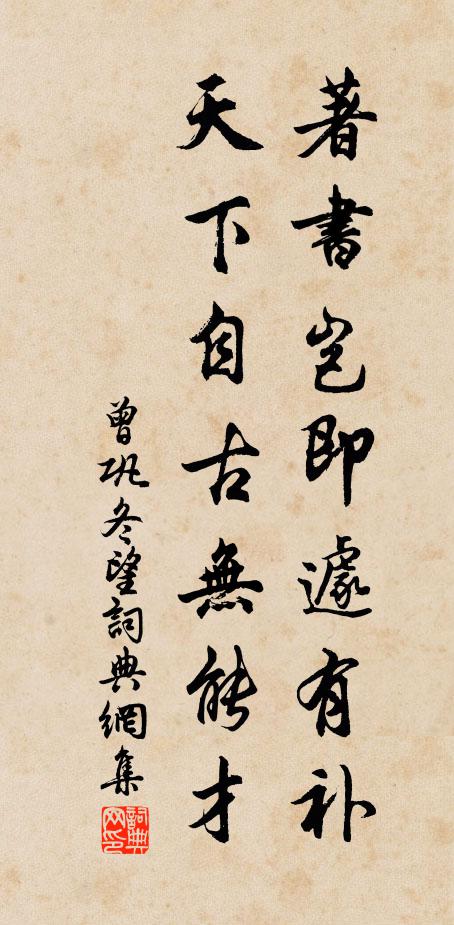 著書豈即遽有补
天下自古無能才
曾巩冬望詞典網集
詞典网印